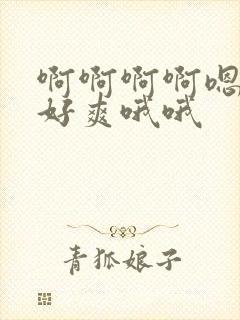 啊啊啊啊嗯
好爽哦哦
青狐娘子